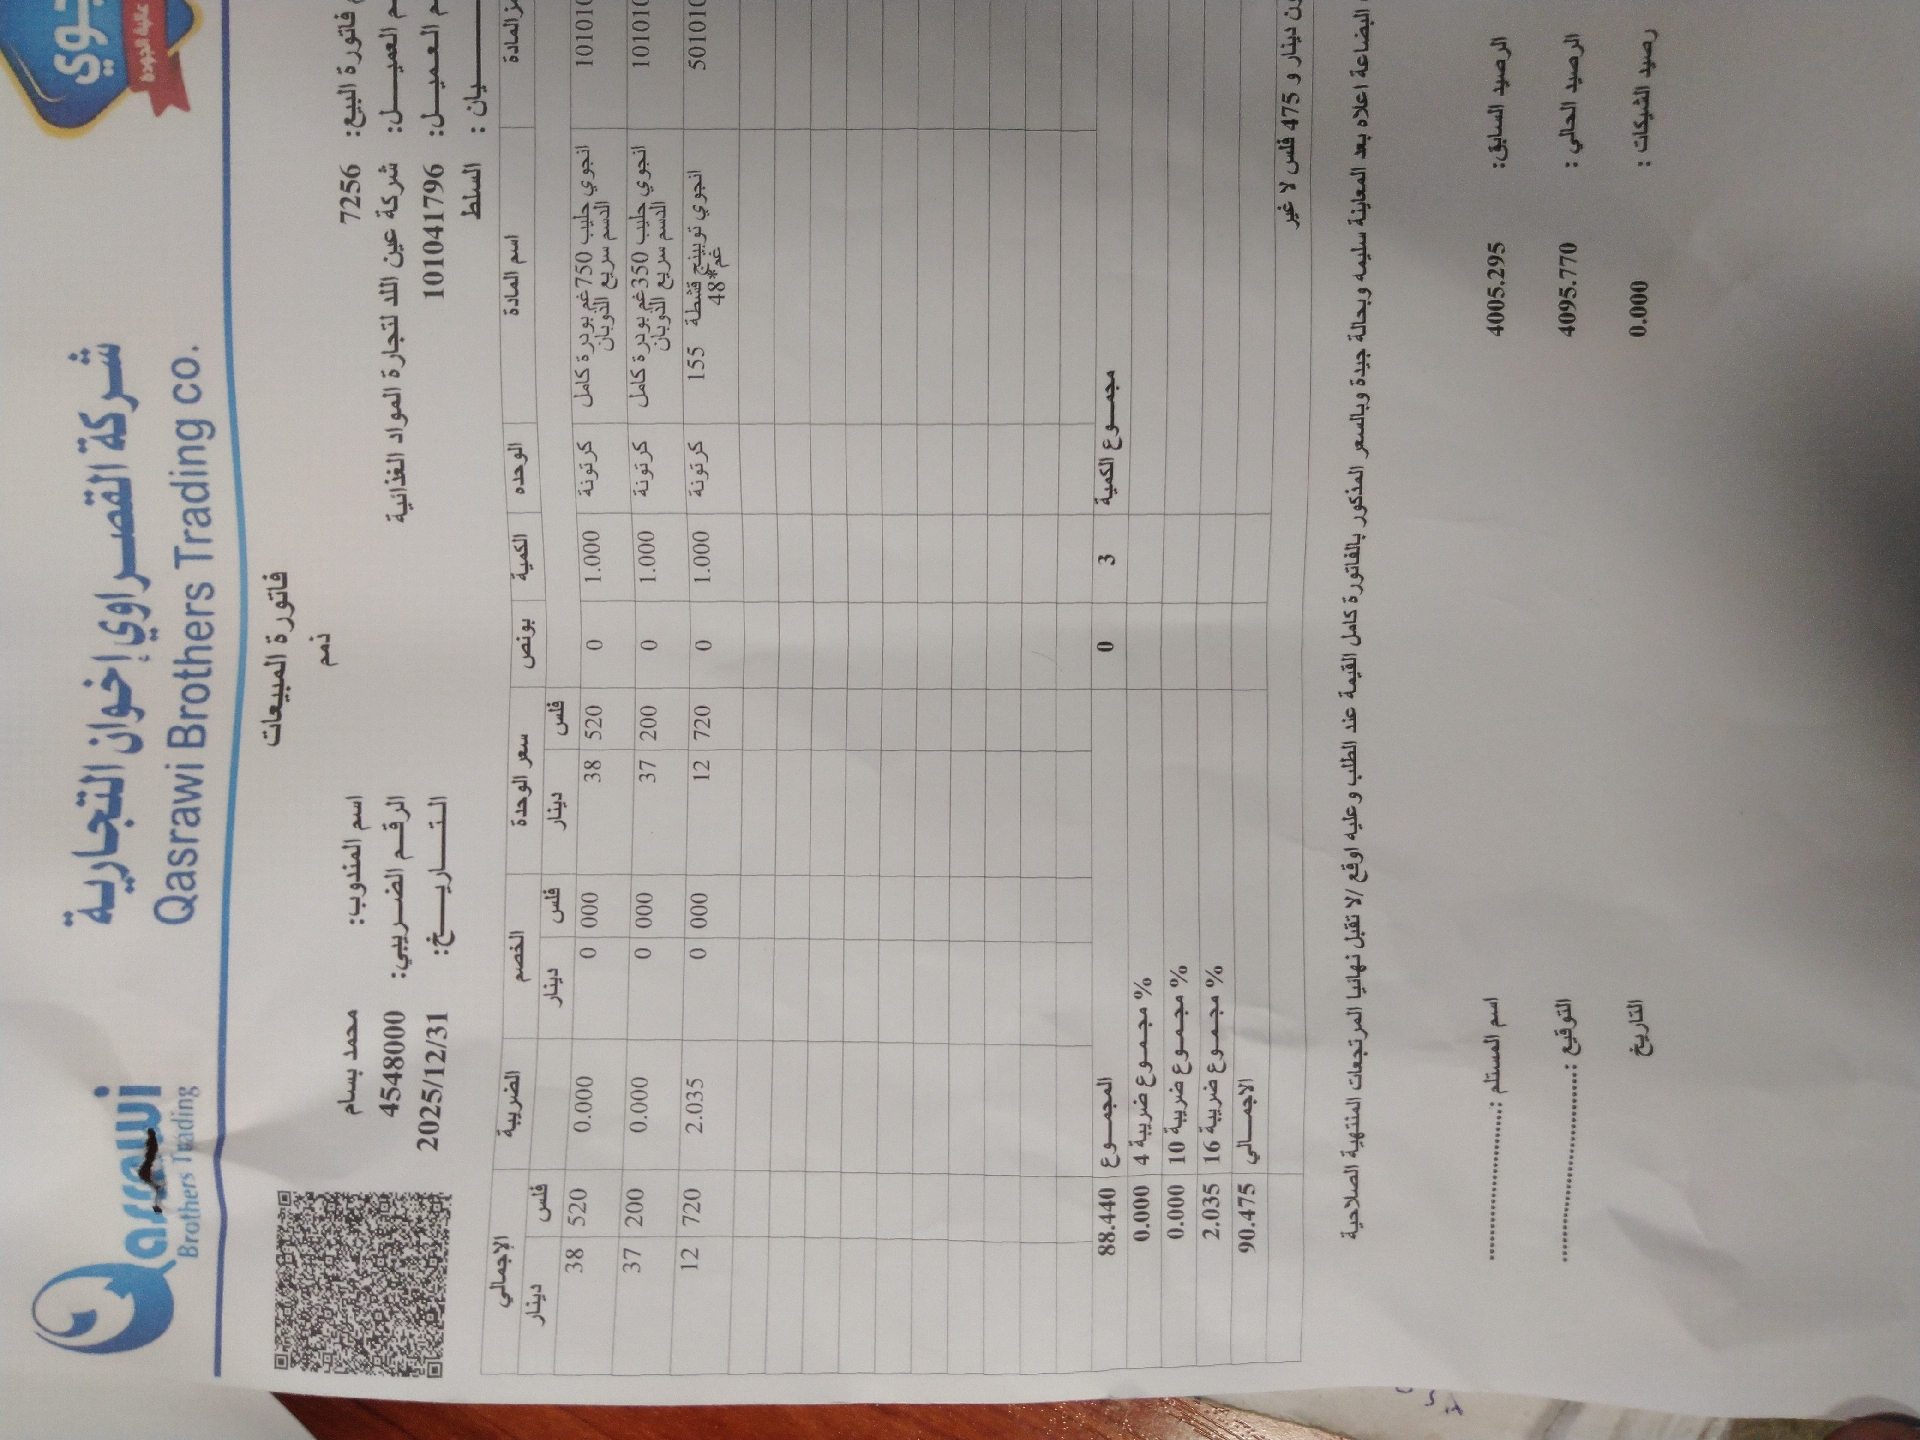 جوي
عالية الجودة
شركة القصراوي إخوان التجارية
Qasrawi Brothers Trading co.
Qasrawi
Brothers Trading
فاتورة المبيعات
ذمم
فاتورة البيع: 7256
اسم المندوب: محمد بسام
العميـــل: شركة عين اللد لتجارة المواد الغذائية
الرقـم الضـريبي: 4548000
العميـل: 101041796
الـتــــاريـــخ: 2025/12/31
ـــيان : السلط
المادة اسم المادة الوحده الكمية بونص سعر الوحدة الخصم الضريبة الإجمالي
دينار فلس دينار فلس دينار فلس
10101 انجوي حليب 750غم بودرة كامل الدسم سريع الذوبان كرتونة 1.000 0 38 520 0 000 0.000 38 520
10101 انجوي حليب 350غم بودرة كامل الدسم سريع الذوبان كرتونة 1.000 0 37 200 0 000 0.000 37 200
50101 انجوي توبينج قشطة 155 غم*48 كرتونة 1.000 0 12 720 0 000 2.035 12 720
مجمـــوع الكمية 3 0 المجمـــوع 88.440
% مجمـوع ضريبة 4 0.000
% مجمـوع ضريبة 10 0.000
% مجمـوع ضريبة 16 2.035
الاجمـــالي 90.475
دينار و 475 فلس لا غير
البضاعة اعلاه بعد المعاينة سليمه وبحالة جيدة وبالسعر المذكور بالفاتورة كامل القيمة عند الطلب وعليه اوقع /لا تقبل نهائيا المرتجعات المنتهية الصلاحية
الرصيد السابق: 4005.295 اسم المستلم :........................
الرصيد الحالي : 4095.770 التوقيع :..............................
رصيد الشيكات : 0.000 التاريخ